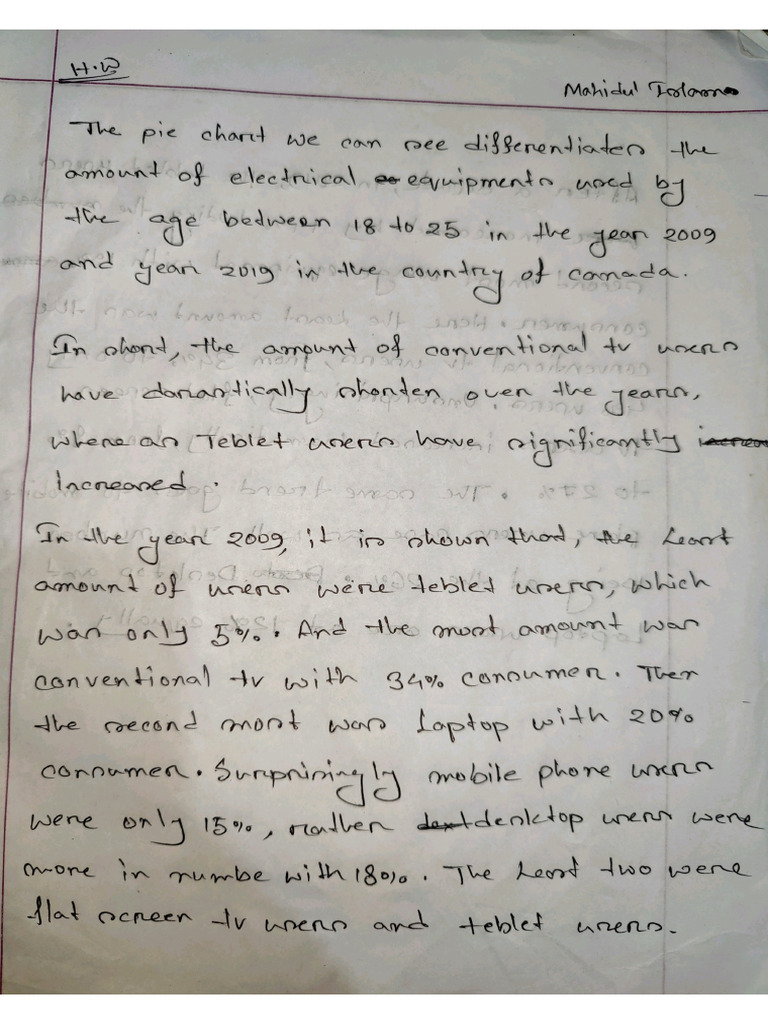 H.W
Mahidul Islam
The pie chart we can see differentiates the
amount of electrical equipments used by
the age between 18 to 25 in the year 2009
and year 2019 in the country of Canada.
In short, the amount of conventional tv users
have dorastically shorten over the years,
where as Teblet users have significantly
increased.
In the year 2009, it is shown that, the least
amount of users were teblet users, which
was only 5%. And the most amount was
conventional tv with 34% consumer. Then
the second most was Laptop with 20%
consumer. Surprisingly mobile phone users
were only 15%, rather desktop users were
more in numbe with 18%. The least two were
flat screen tv users and teblet users.